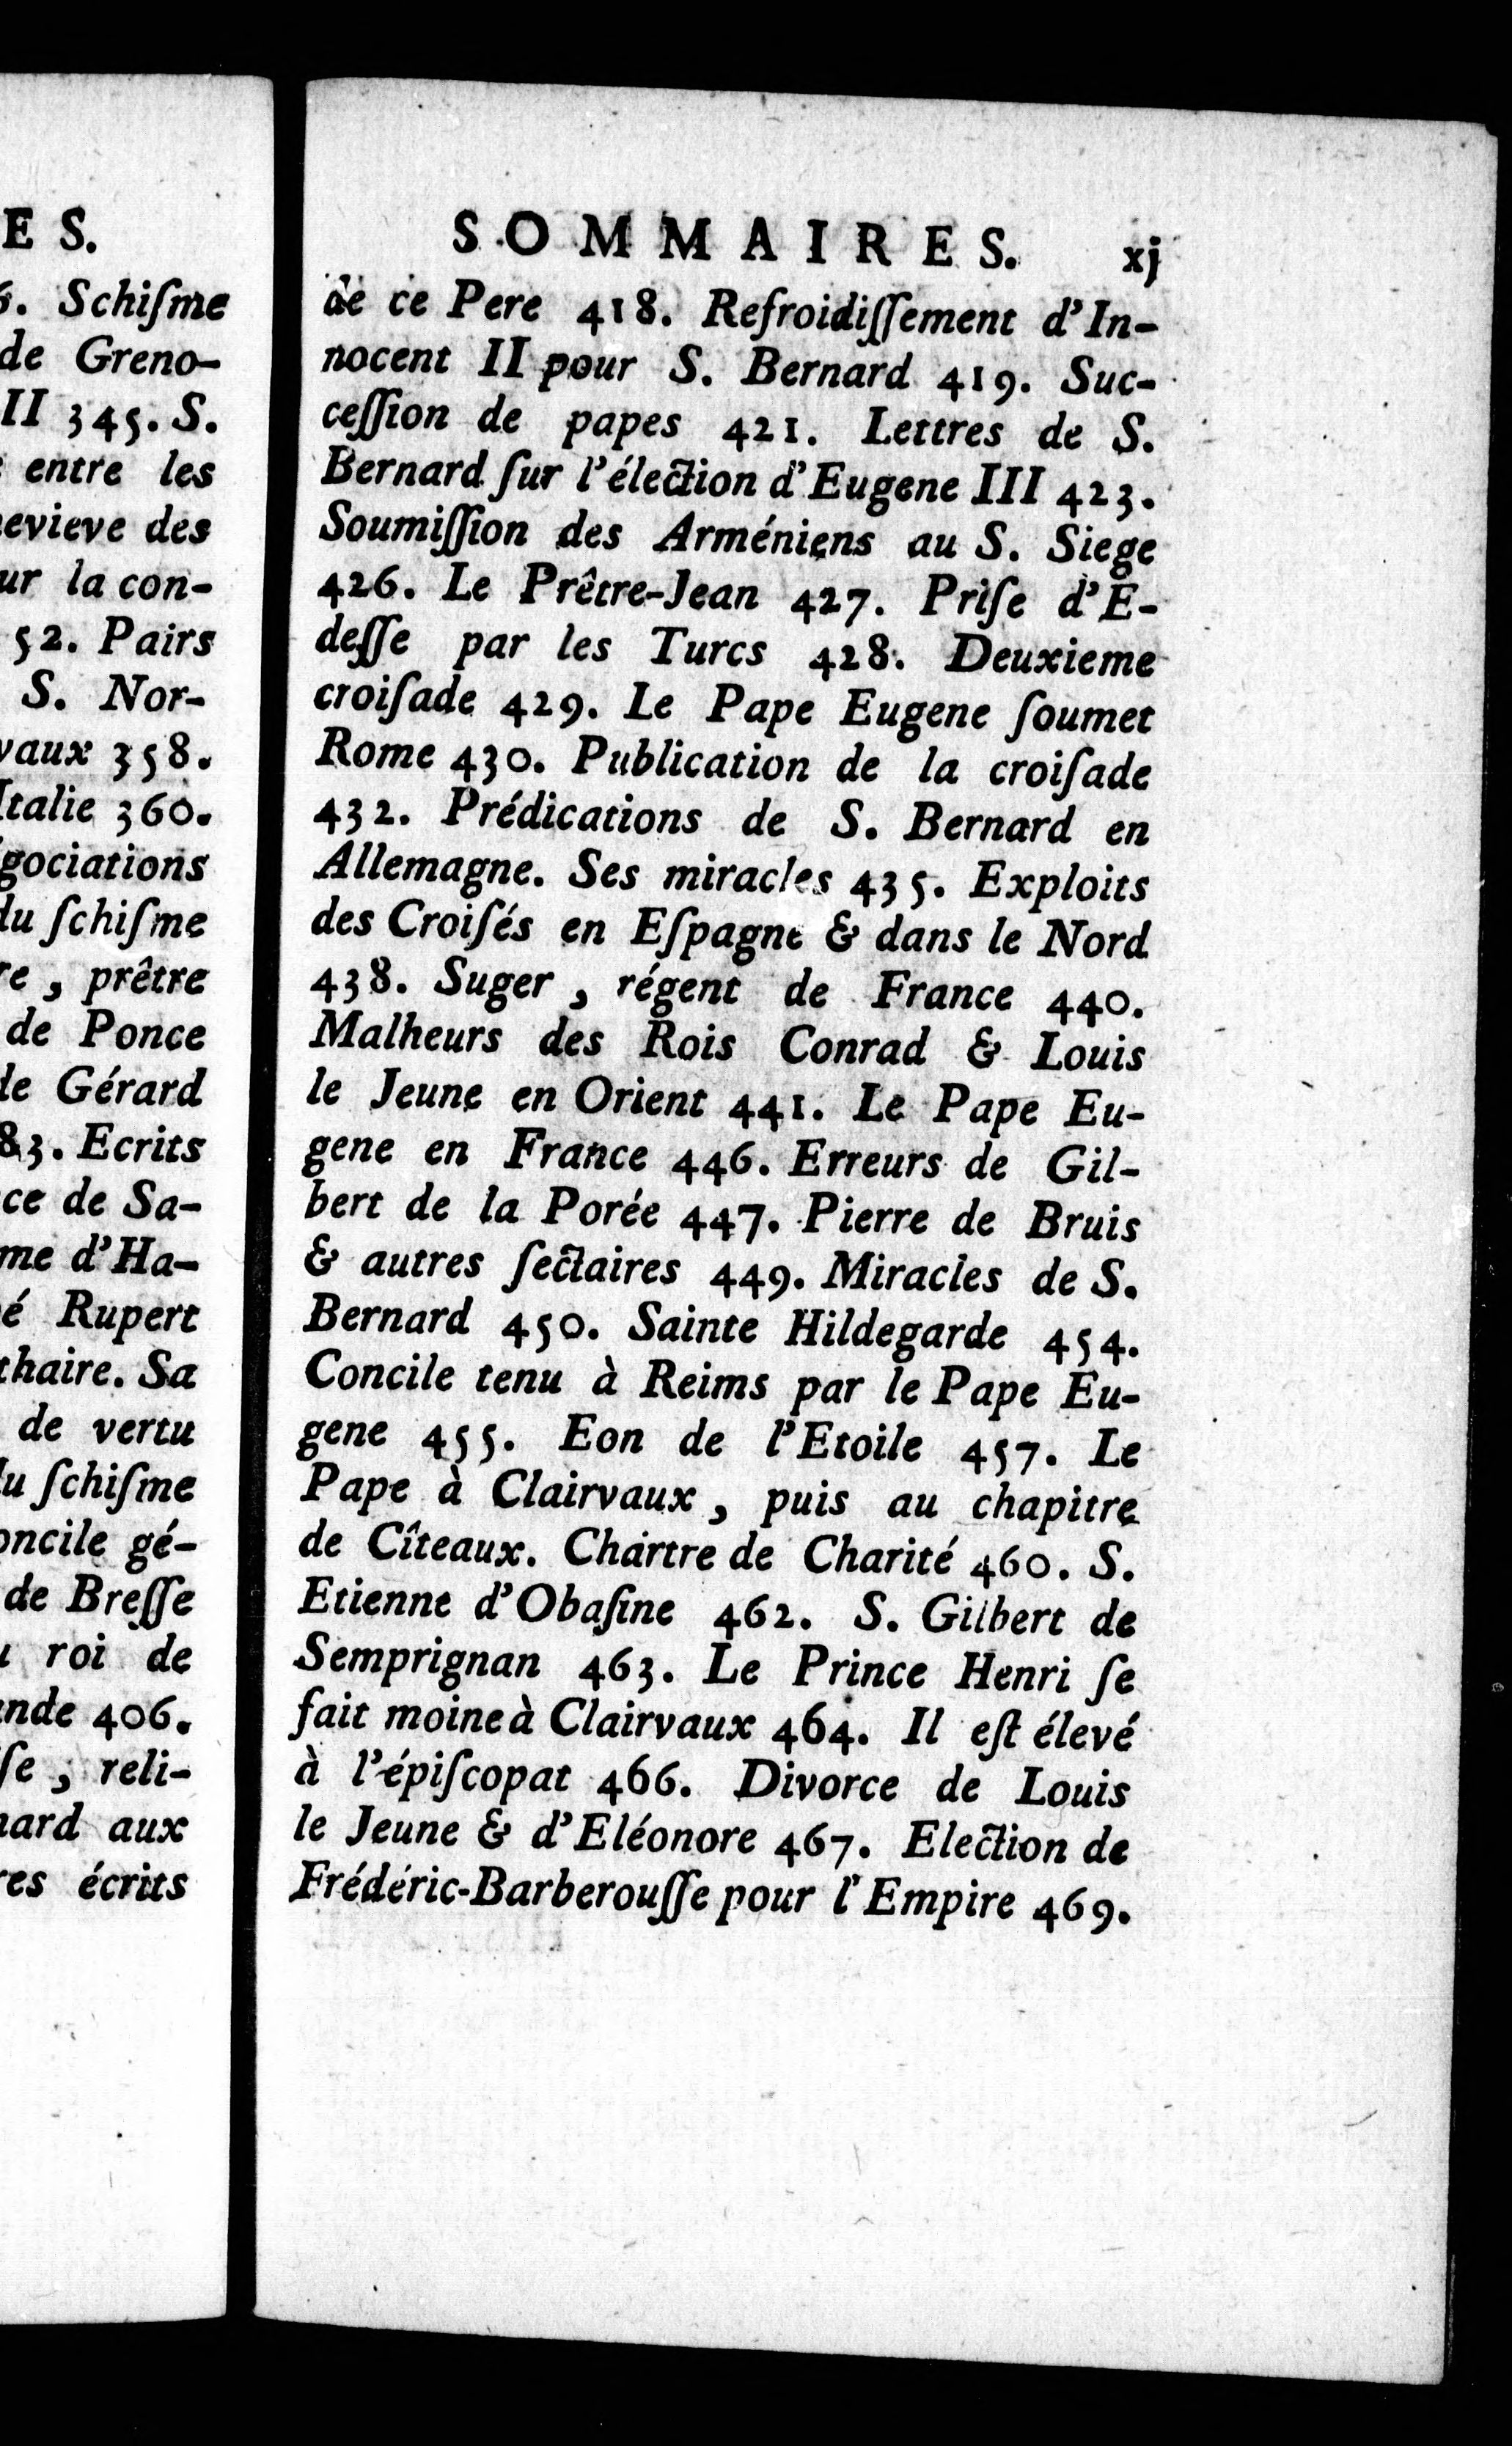 E S.
6. Schiſme
de Greno-
II 345. S.
entre les
evieve des
ur la con-
52. Pairs
S. Nor-
vaux 358.
Italie 360.
gociations
du ſchiſme
re, prêtre
de Ponce
de Gérard
83. Ecrits
ce de Sa-
me d'Ha-
é Rupert
thaire. Sa
de vertu
du ſchiſme
oncile gé-
de Breſſe
roi de
ande 406.
ſe, reli-
nard aux
res écrits
SOMMAIRES. xj
de ce Pere 418. Refroidiſſement d'In-
nocent II pour S. Bernard 419. Suc-
ceſſion de papes 421. Lettres de S.
Bernard ſur l'élection d'Eugene III 423.
Soumiſſion des Arméniens au S. Siege
426. Le Prêtre-Jean 427. Priſe d'E-
deſſe par les Turcs 428. Deuxieme
croiſade 429. Le Pape Eugene ſoumet
Rome 430. Publication de la croiſade
432. Prédications de S. Bernard en
Allemagne. Ses miracles 435. Exploits
des Croiſés en Eſpagne & dans le Nord
438. Suger, régent de France 440.
Malheurs des Rois Conrad & Louis
le Jeune en Orient 441. Le Pape Eu-
gene en France 446. Erreurs de Gil-
bert de la Porée 447. Pierre de Bruis
& autres ſectaires 449. Miracles de S.
Bernard 450. Sainte Hildegarde 454.
Concile tenu à Reims par le Pape Eu-
gene 455. Eon de l'Etoile 457. Le
Pape à Clairvaux, puis au chapitre
de Cîteaux. Chartre de Charité 460. S.
Etienne d'Obaſine 462. S. Gilbert de
Semprignan 463. Le Prince Henri ſe
fait moine à Clairvaux 464. Il eſt élevé
à l'épiſcopat 466. Divorce de Louis
le Jeune & d'Eléonore 467. Election de
Frédéric-Barberouſſe pour l'Empire 469.